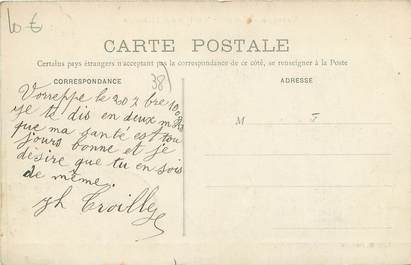 10 €
CARTE POSTALE
Certains pays étrangers n'acceptant pas la correspondance de ce côté, se renseigner à la Poste
CORRESPONDANCE
38
Voreppe le 20 Xbre
je te dis en deux mots
que ma santé est tou
jours bonne et je
désire que tu en sois
de même.
Jh Croilly
ADRESSE
M